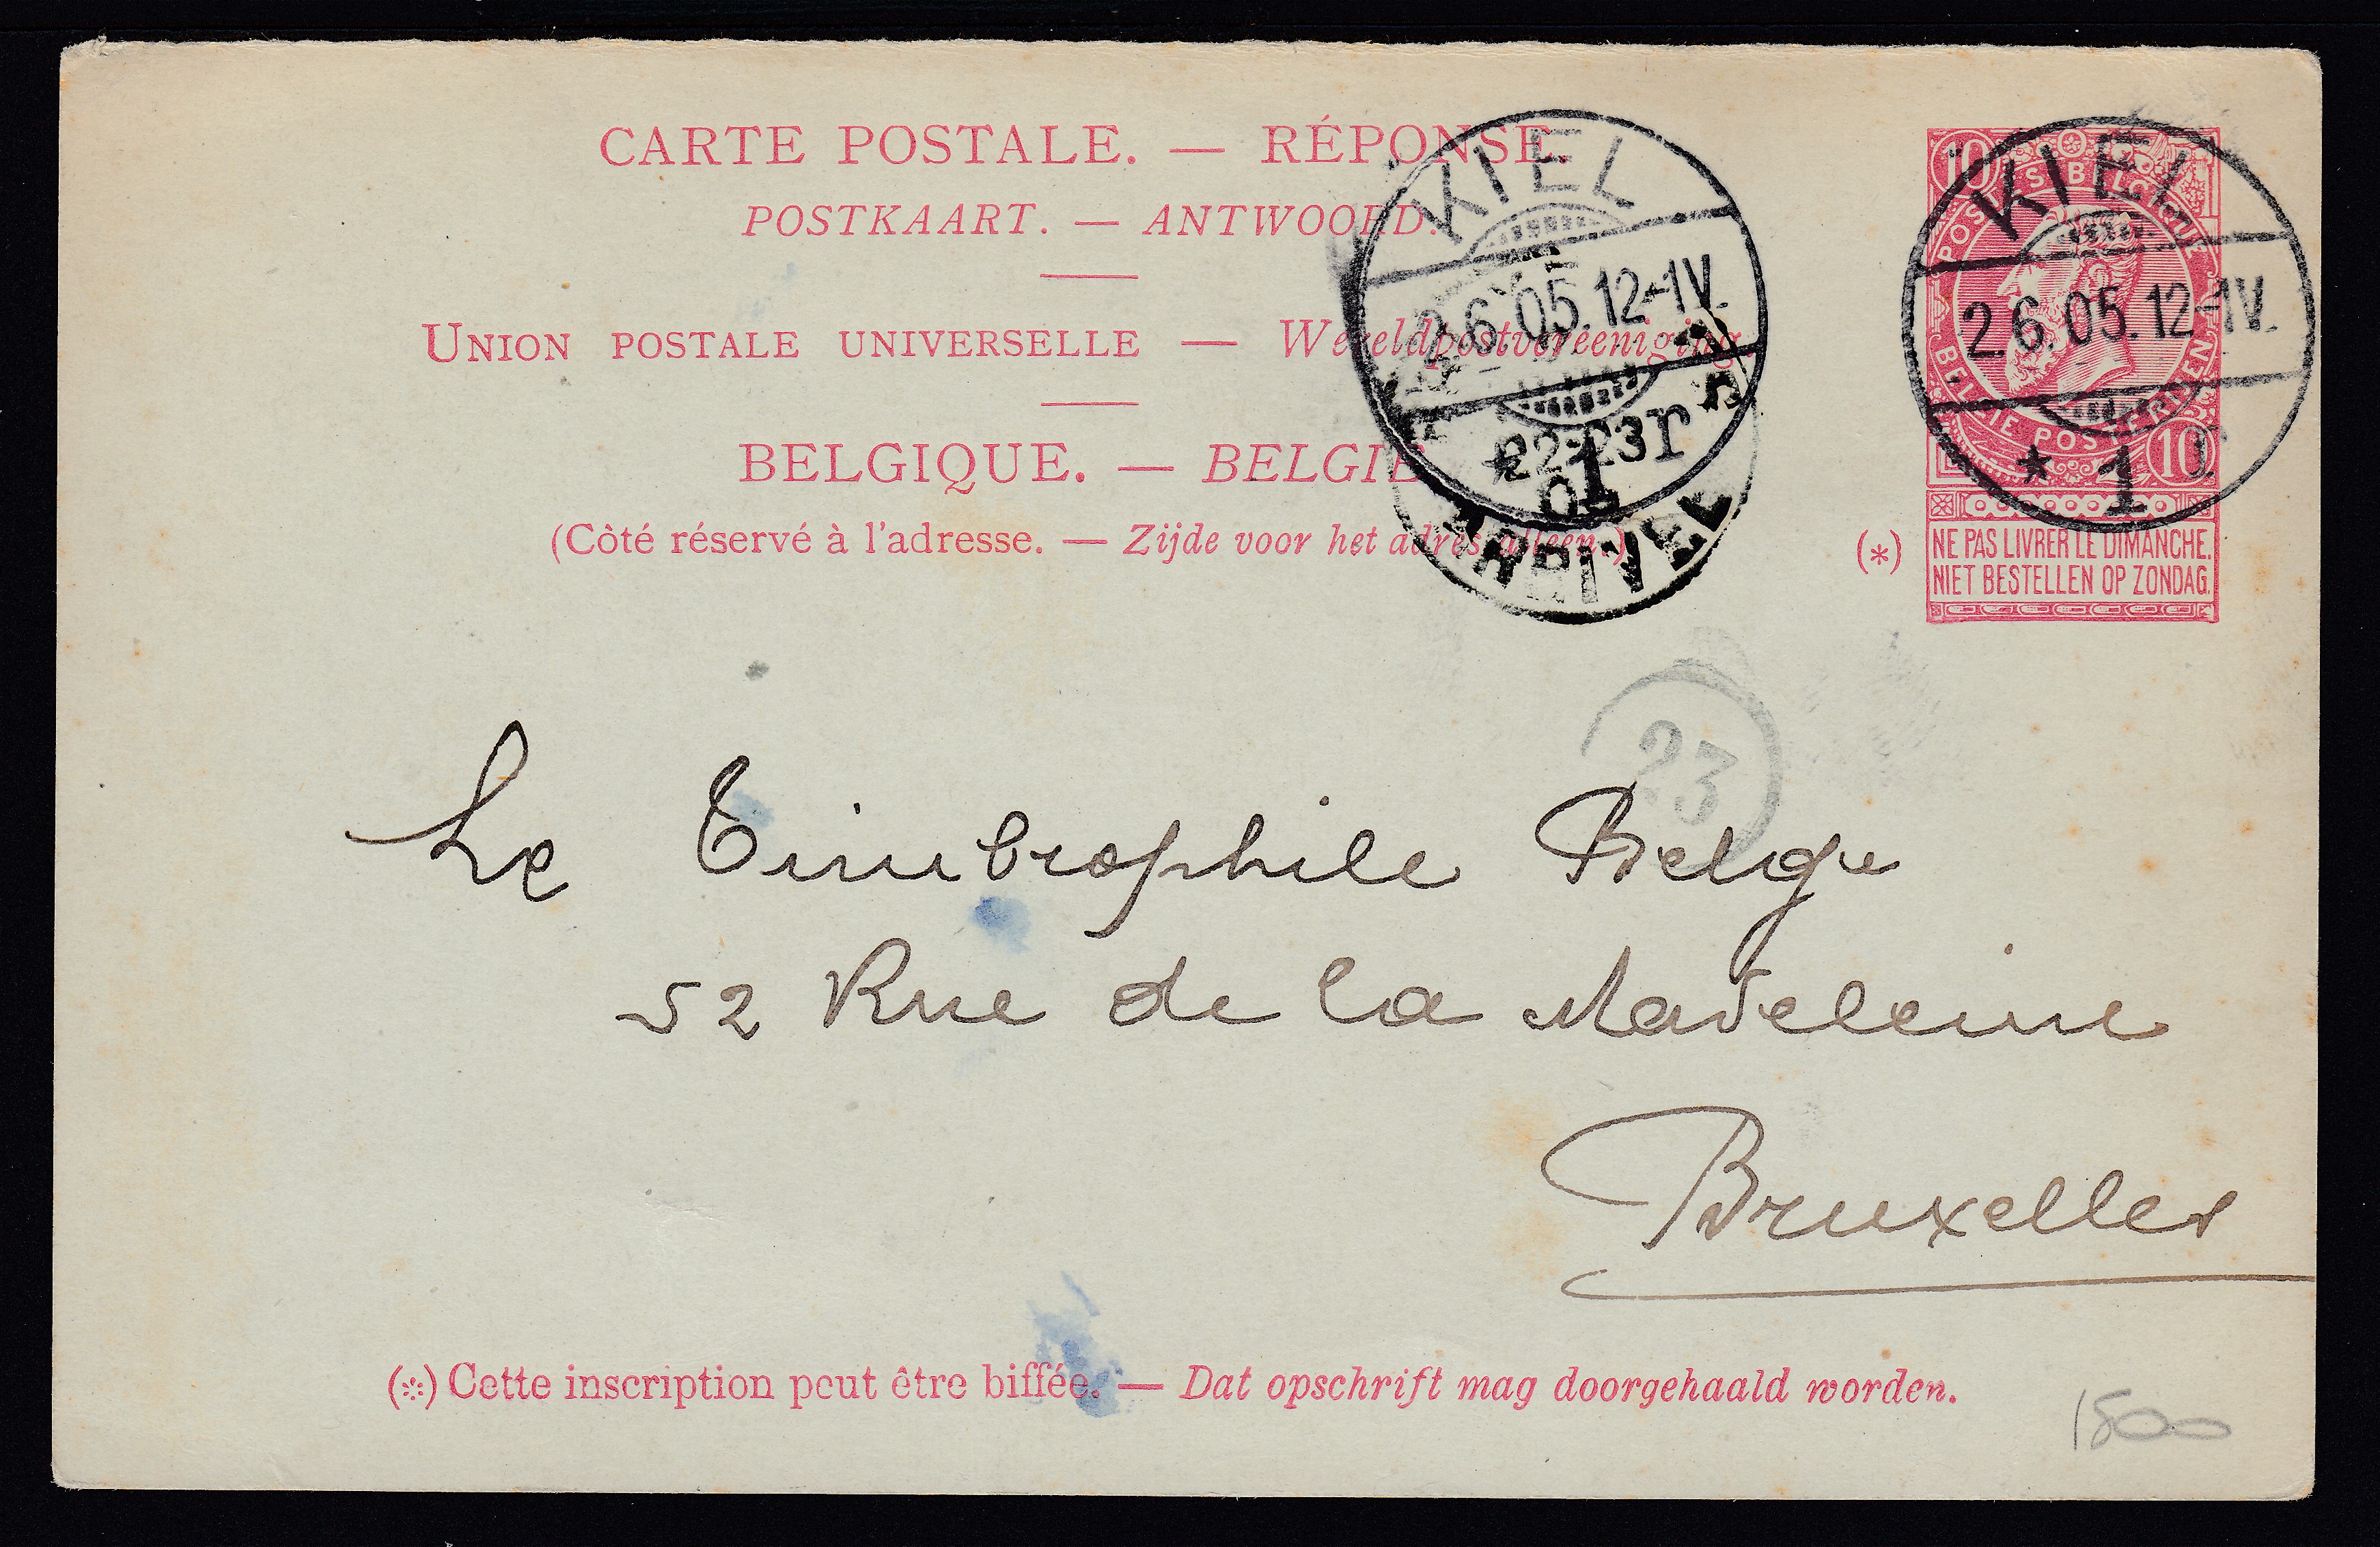 CARTE POSTALE. — RÉPONSE.
POSTKAART. — ANTWOORD.
UNION POSTALE UNIVERSELLE — Wereldpostvereeniging.
BELGIQUE. — BELGIË
(Côté réservé à l'adresse. — Zijde voor het adres alleen.)
KIEL
2.6.05.12-1V.
* 1
22-23
05
ARRIVEE
10
POSTES BELGIQUE
BELGIE POSTERIJEN
10
KIEL
2.6.05.12-1V.
* 1
(*)
NE PAS LIVRER LE DIMANCHE.
NIET BESTELLEN OP ZONDAG.
23
Le Timbrophile Belge
52 Rue de la Madeleine
Bruxelles
(*) Cette inscription peut être biffée. — Dat opschrift mag doorgehaald worden.
1500